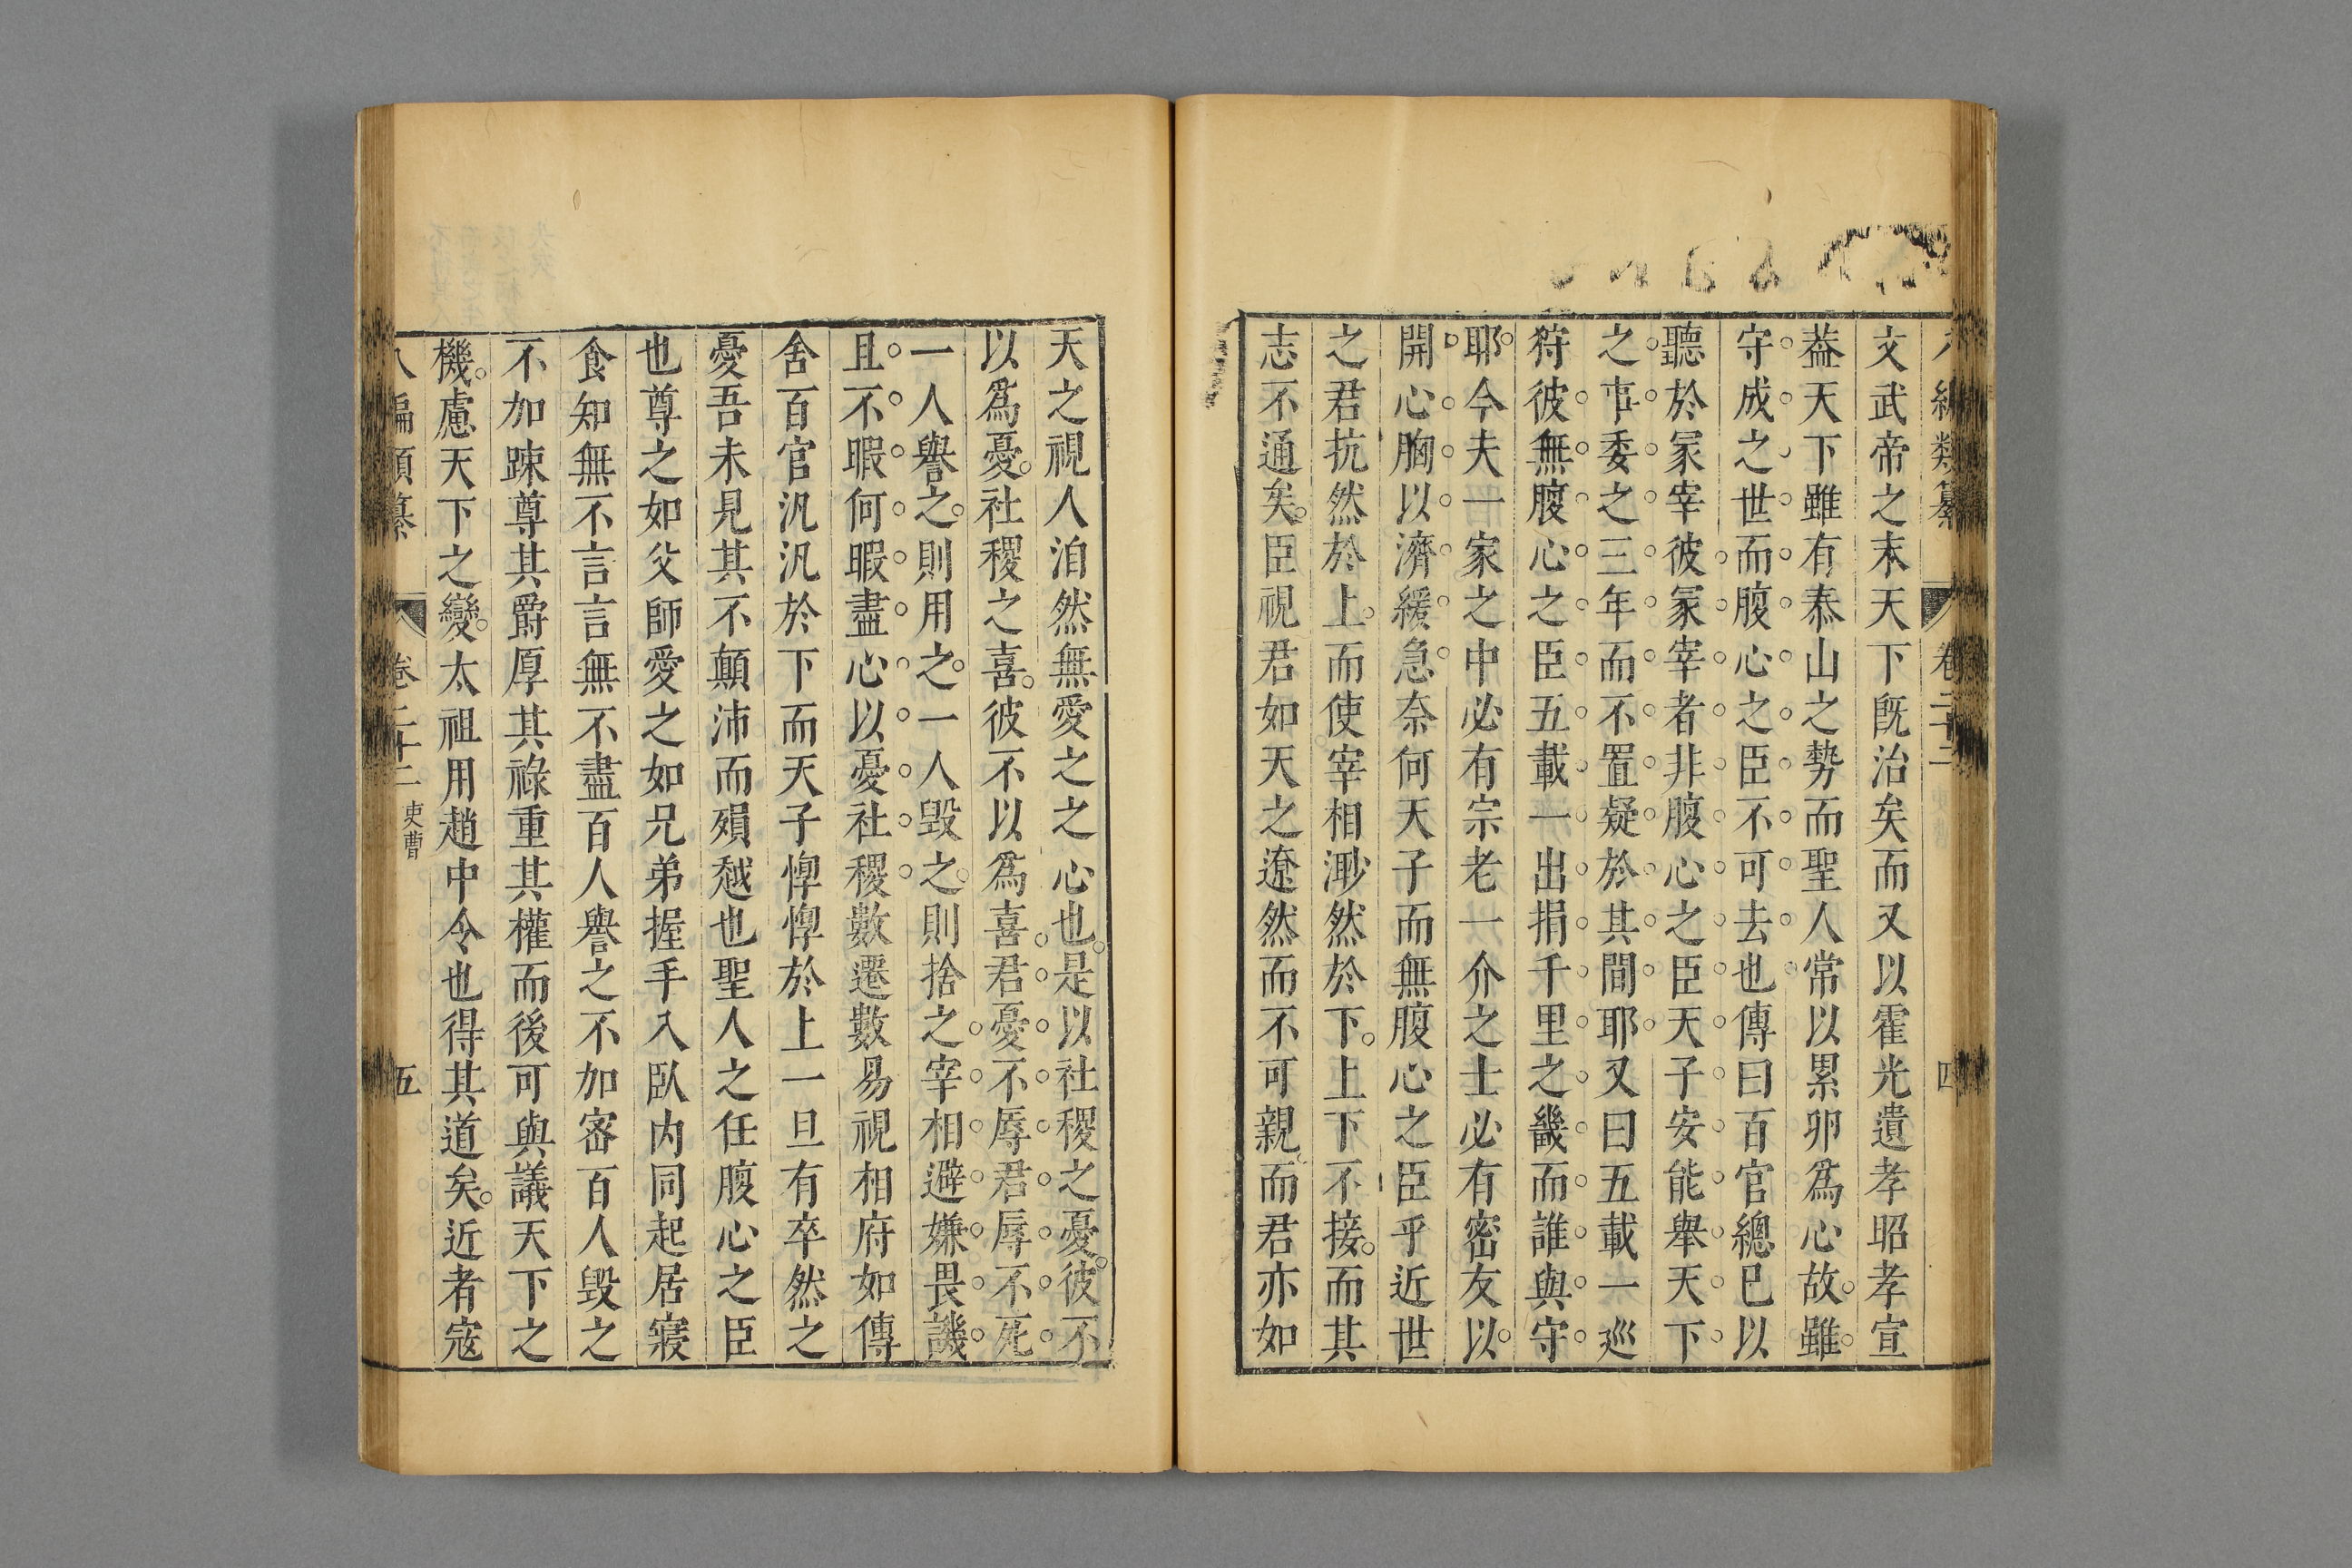 文武帝之末天下旣治矣而又以霍光遺孝昭孝宣
葢天下雖有泰山之勢而聖人常以累卵爲心故雖
守成之世而腹心之臣不可去也傳曰百官總已以
聽於冡宰彼冡宰者非腹心之臣天子安能舉天下
之事委之三年而不置疑於其間耶又曰五載一巡
狩彼無腹心之臣五載一出捐千里之畿而誰與守
耶今夫一家之中必有宗老一介之士必有密友以
開心胸以濟緩急奈何天子而無腹心之臣乎近世
之君抗然於上而使宰相渺然於下上下不接而其
志不通矣臣視君如天之遼然而不可親而君亦如
天之視人泊然無愛之之心也是以社稷之憂彼不
以爲憂社稷之喜彼不以爲喜君憂不辱君辱不死
一人譽之則用之一人毀之則捨之宰相避嫌畏譏
且不暇何暇盡心以憂社稷數遷數易視相府如傳
舍百官汎汎於下而天子惸惸於上一旦有卒然之
憂吾未見其不顛沛而殞越也聖人之任腹心之臣
也尊之如父師愛之如兄弟握手入臥内同起居寢
食知無不言言無不盡百人譽之不加宻百人毀之
不加踈尊其爵厚其祿重其權而後可與議天下之
機慮天下之變太祖用趙中令也得其道矣近者寇
八編類纂 卷二十二 吏曹 五